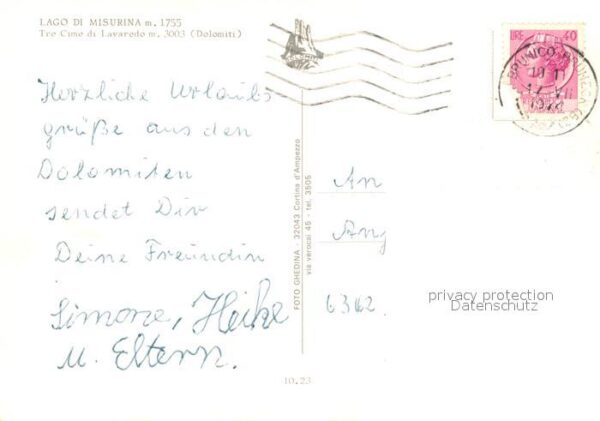 LAGO DI MISURINA m. 1755
Tre Cime di Lavaredo m. 3003 (Dolomiti)
LIRE 40
BRUNICO-BRUNECK (BZ)
Herzliche Urlaubs
grüße aus den
Dolomiten
sendet Dir
Deine Freundin
Simone, Heike
u. Eltern.
FOTO GHEDINA - 32043 Cortina d'Ampezzo
via verocai 45 - tel. 3505
An
Ang
6342
privacy protection
Datenschutz
10.23